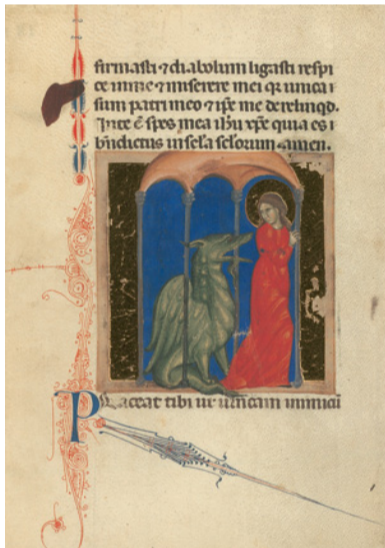 firmasti ⁊ diabolum ligasti respi
ce in me ⁊ miserere mei qr unica
sum patri meo ⁊ ipe me derelinqd.
In te ē spes mea ihu xpe quia es
bndictus in scla sclorum amen.
Placeat tibi ut